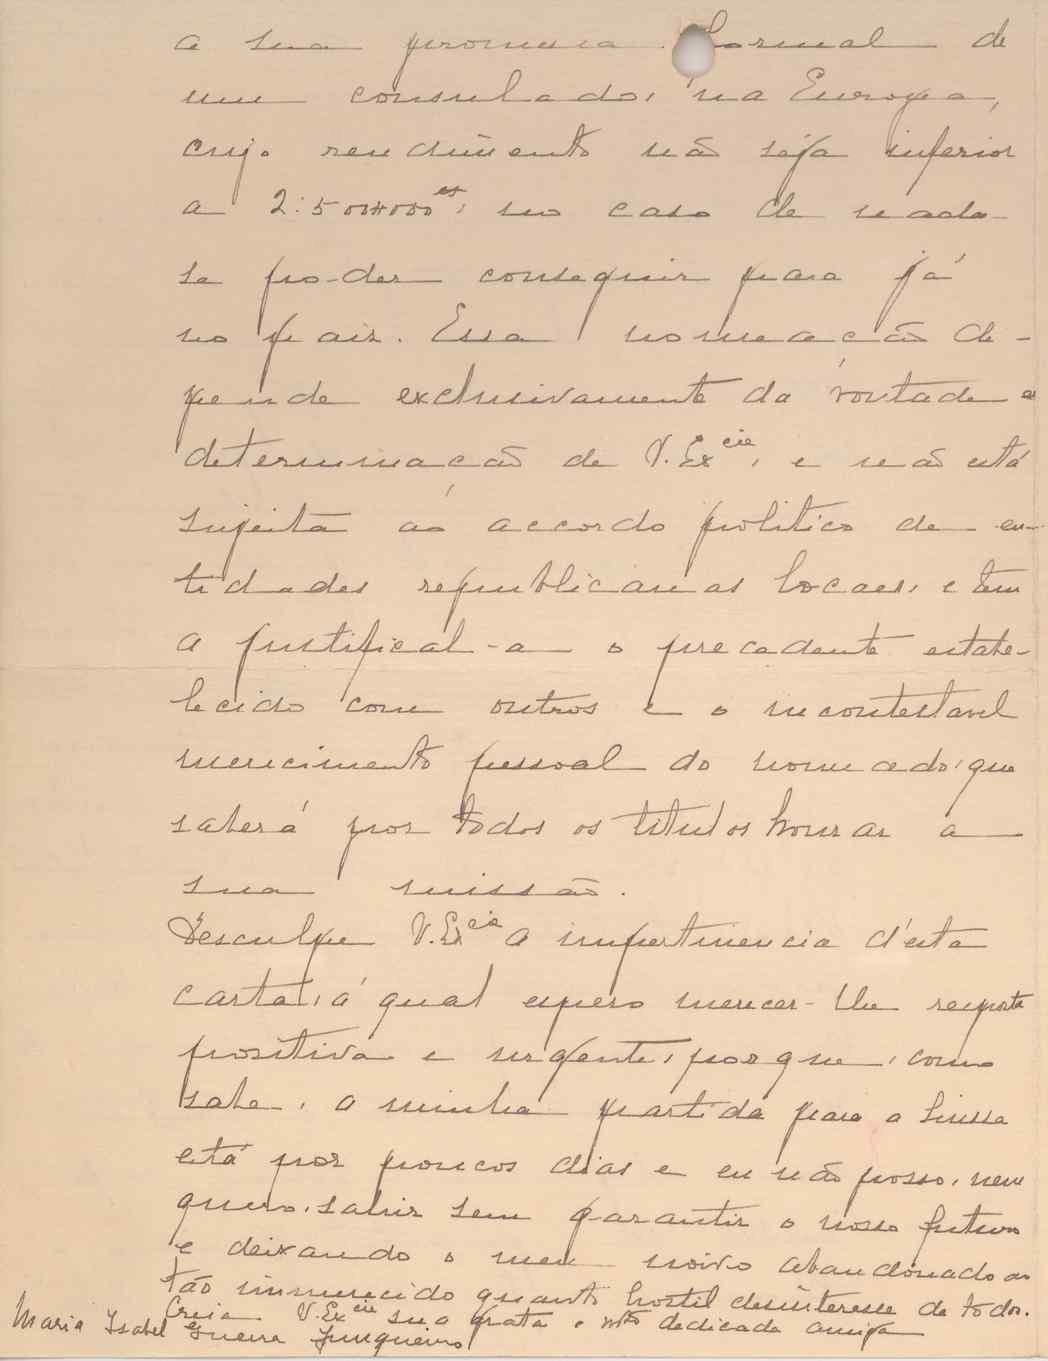 a sua promessa formal de
um consulado, na Europa,
cujo rendimento não seja inferior
a 2:500#000 es, no caso de nada
se poder conseguir para já
no paiz. Essa nomeação de-
pende exclusivamente da vontade e
determinação de V. Ex.cia, e não está
sujeita ao accordo politico de en-
tidades republicanas locaes, e tem
a justifical-a o precedente estabe-
lecido com outros e o incontestavel
merecimento pessoal do nomeado, que
saberá por todos os titulos honrar a
sua missão.
Desculpe V. Ex.cia a impertinencia d'esta
carta, á qual espero merecer-lhe resposta
positiva e urgente, porque, como
sabe, a minha partida para a Suissa
está por poucos dias e eu não posso, nem
quero, sahir sem garantir o nosso futuro
e deixando o meu noivo abandonado ao
tão immerecido quanto hostil desinteresse de todos.
Creia V. Ex.cia sua grata e mto dedicada amiga
Maria Isabel Guerra Junqueiro